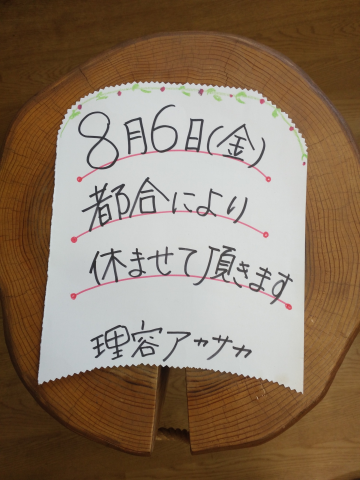 8月6日(金)
都合により
休ませて頂きます
理容アカサカ